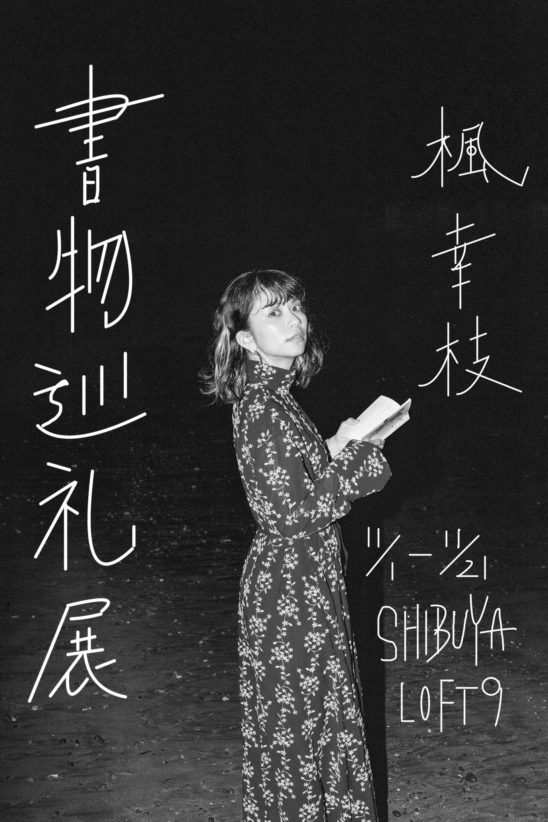 楓幸枝
書物巡礼展
11/1—11/21
SHIBUYA
LOFT9